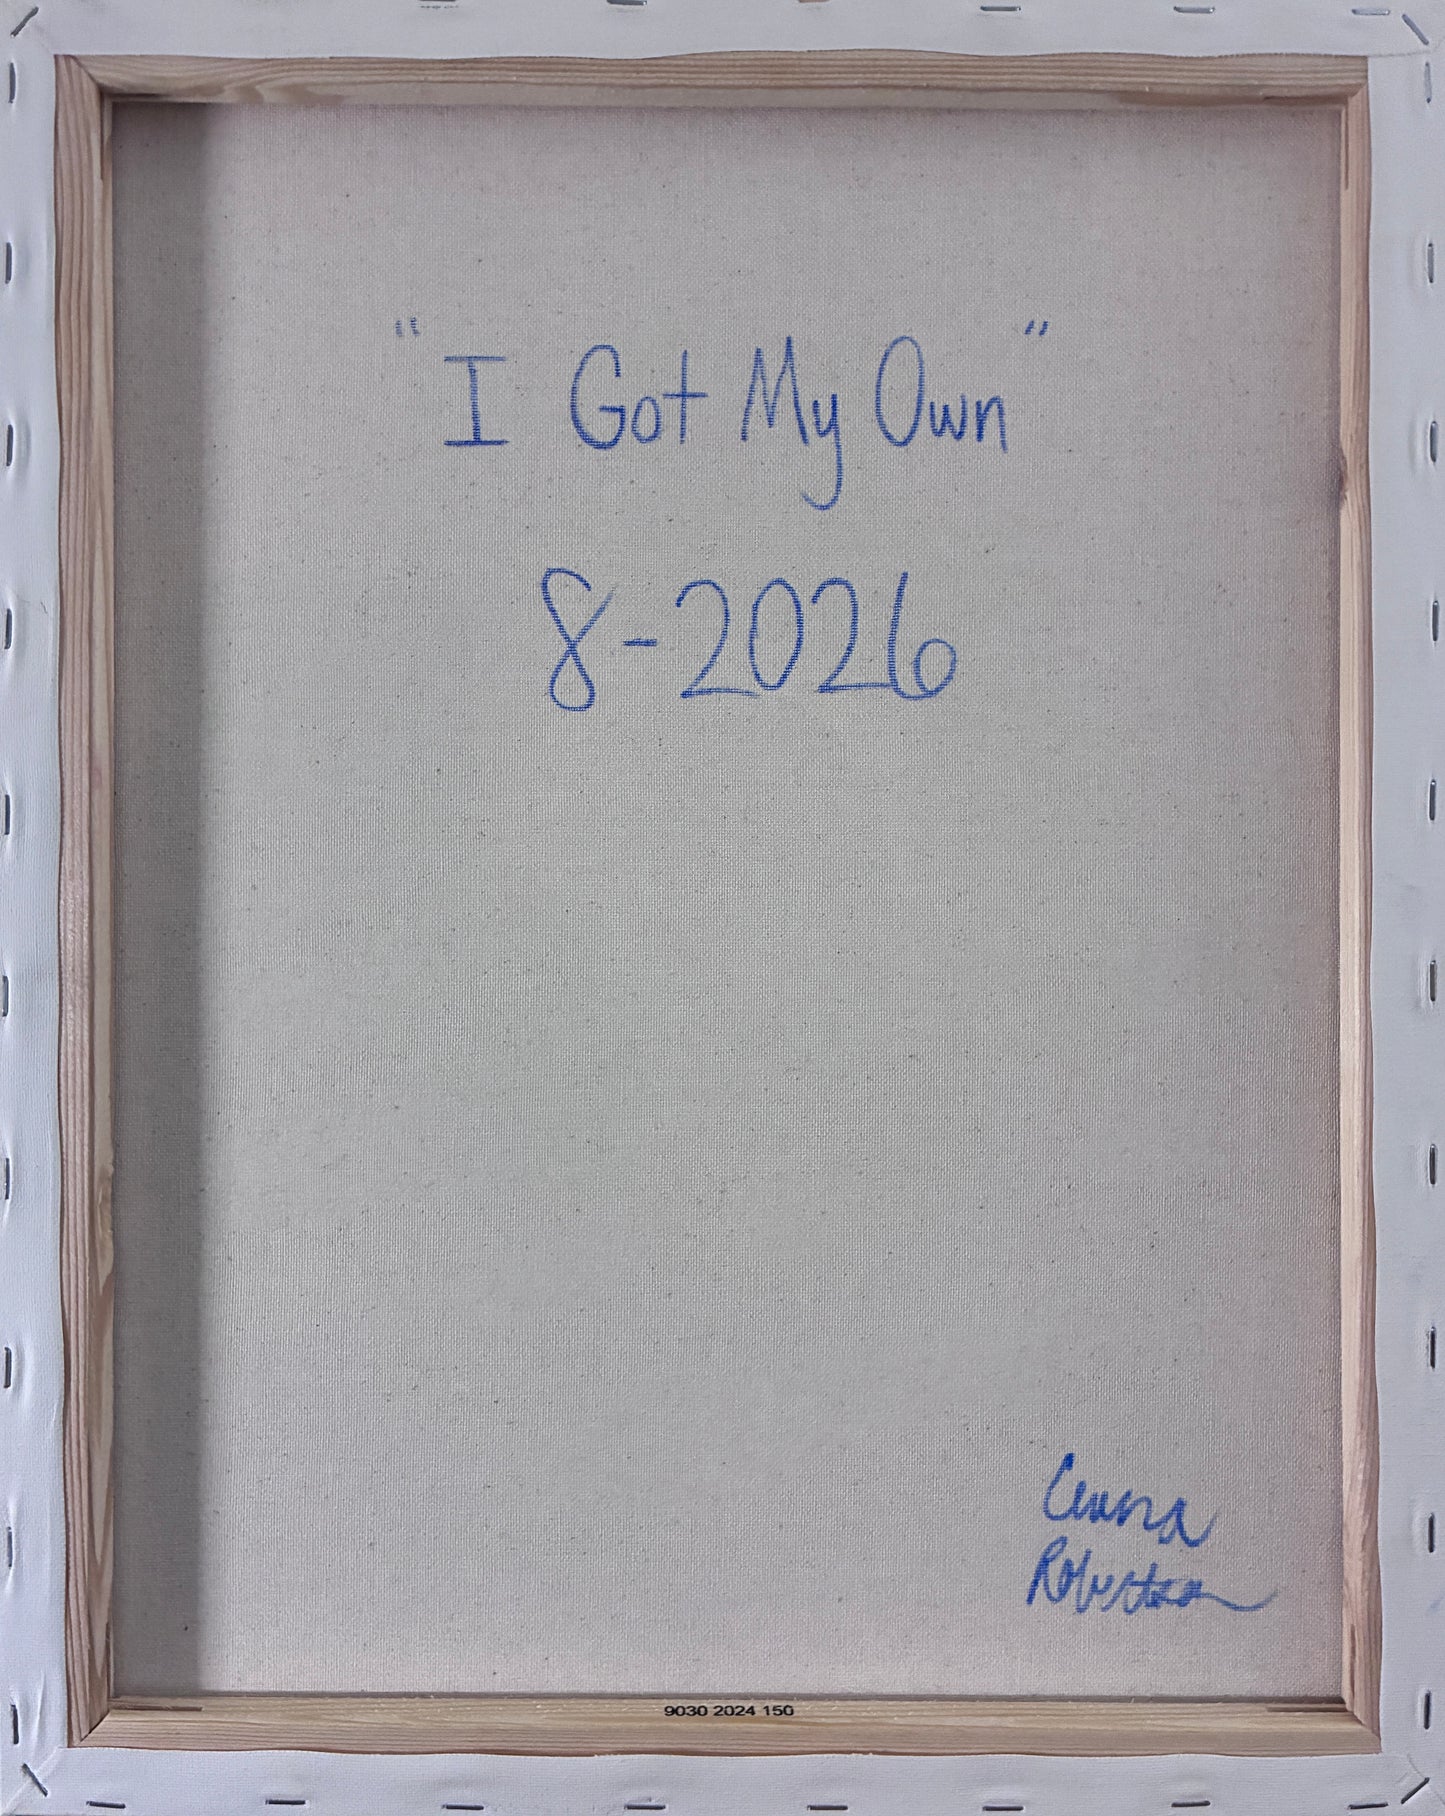 "I Got My Own"
8-2026
Robertson
9030 2024 150